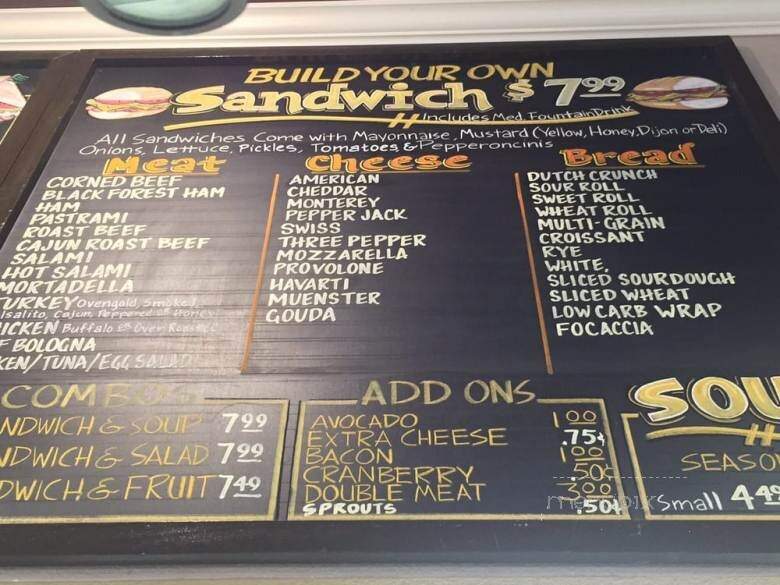 BUILD YOUR OWN
Sandwich $7.99
Includes Med. Fountain Drink
All Sandwiches Come with Mayonnaise, Mustard (Yellow, Honey, Dijon or Deli)
Onions, Lettuce, Pickles, Tomatoes, & Pepperoncinis
Meat
CORNED BEEF
BLACK FOREST HAM
HAM
PASTRAMI
ROAST BEEF
CAJUN ROAST BEEF
SALAMI
HOT SALAMI
MORTADELLA
TURKEY Ovengold, Smoked,
lsalito, Cajun, Peppered or Honey
ICKEN Buffalo or Oven Roasted
F BOLOGNA
KEN/TUNA/EGG SALAD
Cheese
AMERICAN
CHEDDAR
MONTEREY
PEPPER JACK
SWISS
THREE PEPPER
MOZZARELLA
PROVOLONE
HAVARTI
MUENSTER
GOUDA
Bread
DUTCH CRUNCH
SOUR ROLL
SWEET ROLL
WHEAT ROLL
MULTI-GRAIN
CROISSANT
RYE
WHITE,
SLICED SOURDOUGH
SLICED WHEAT
LOW CARB WRAP
FOCACCIA
COMBOS
NDWICH & SOUP 7.99
NDWICH & SALAD 7.99
DWICH & FRUIT 7.49
ADD ONS
AVOCADO 1.00
EXTRA CHEESE .75¢
BACON 1.00
CRANBERRY .50¢
DOUBLE MEAT 3.00
SPROUTS .50¢
SOU
SEASO
Small 4.49